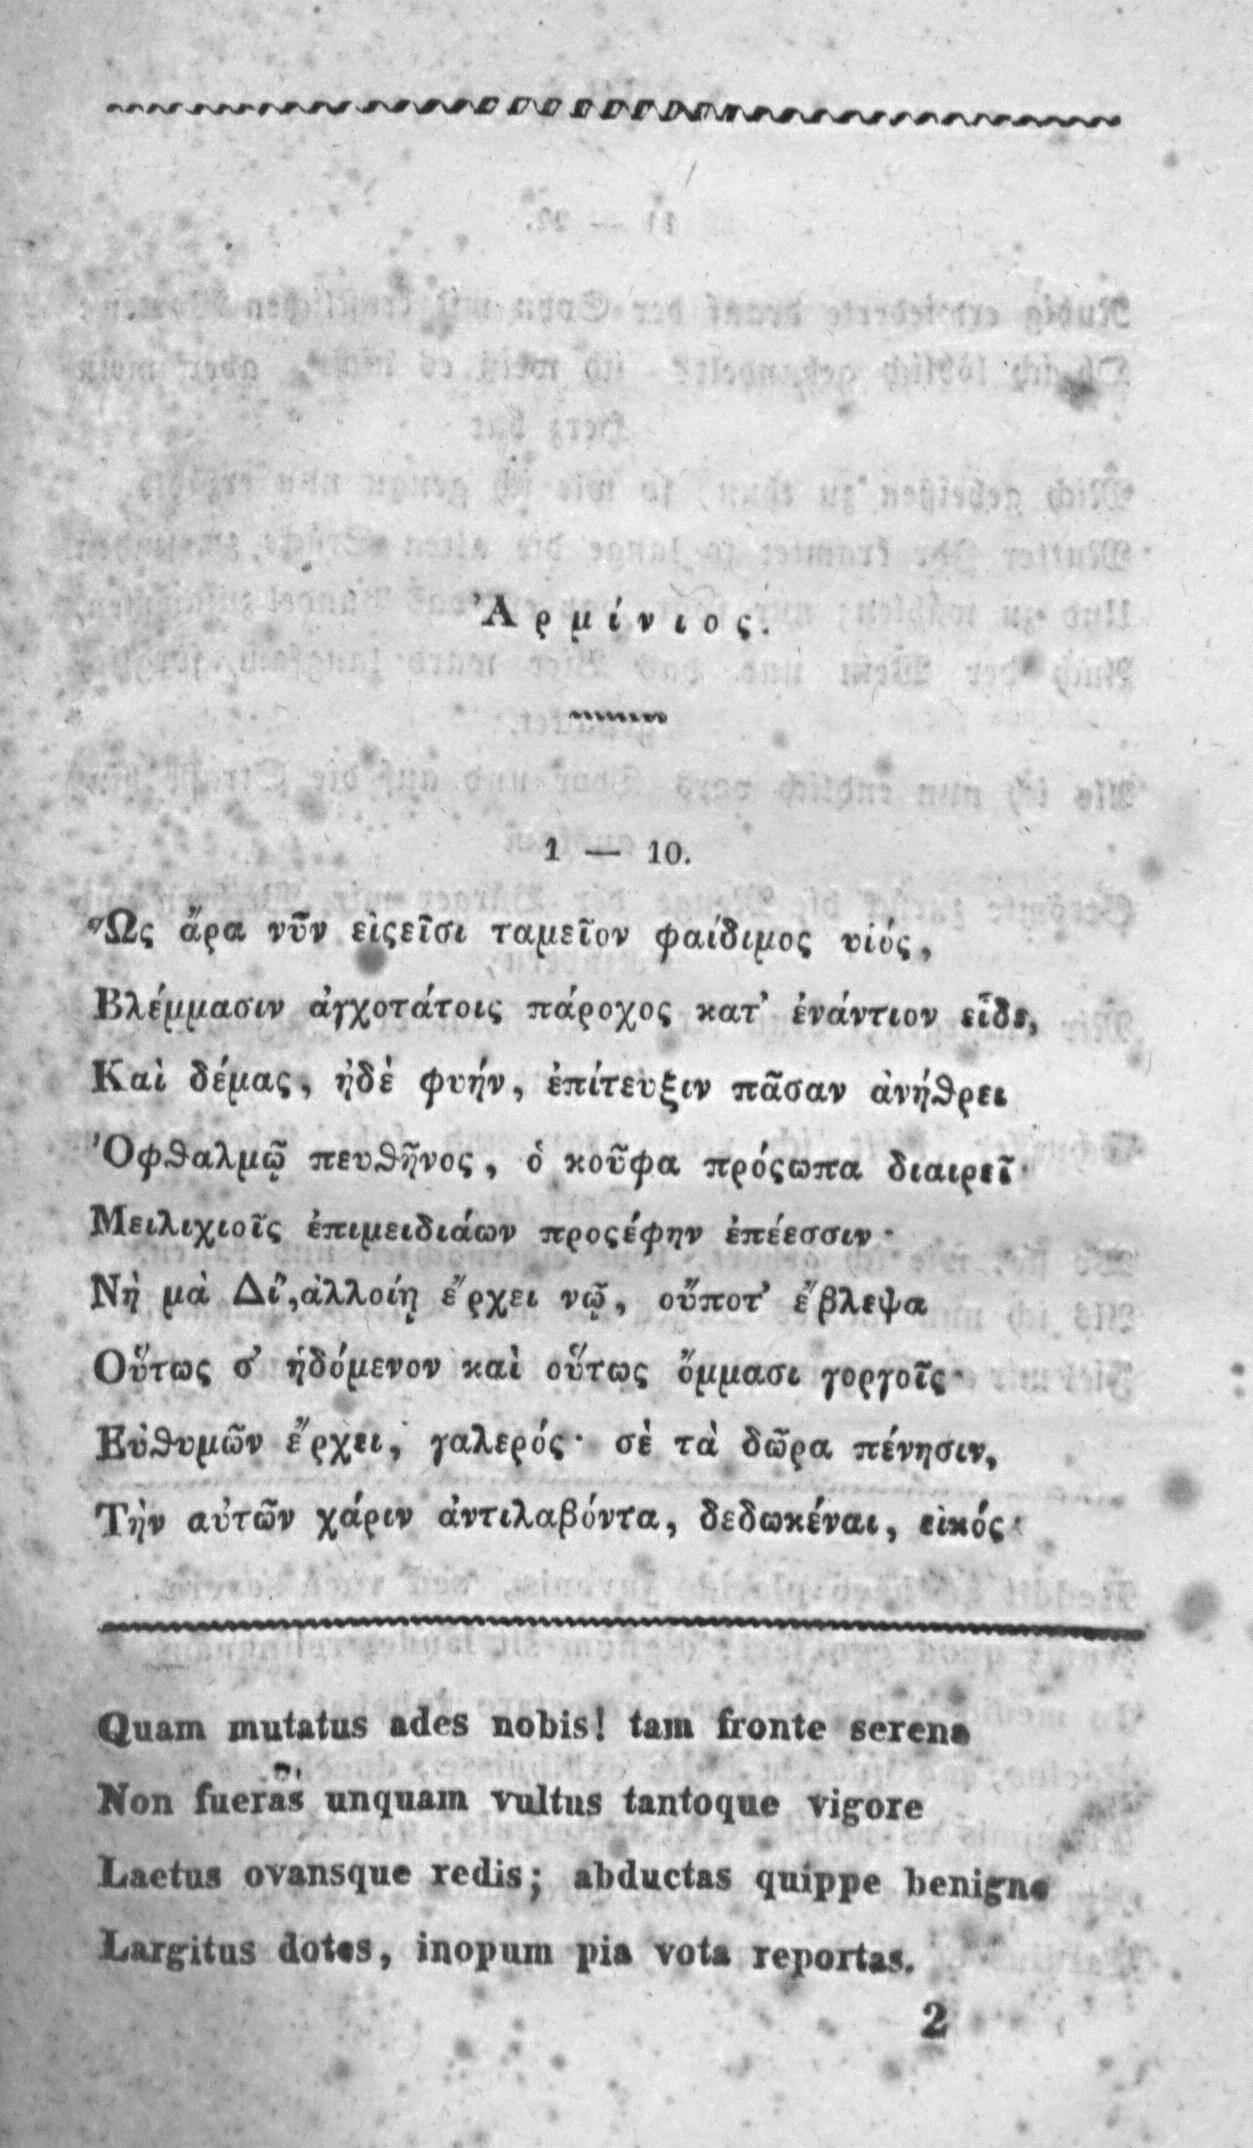 Ἀρμίνιος.
1 — 10.
Ὣς ἄρα νῦν εἰςεῖσι ταμεῖον φαίδιμος υἱός,
Βλέμμασιν ἀγχοτάτοις πάροχος κατ' ἐνάντιον εἶδε,
Καὶ δέμας, ἠδὲ φυήν, ἐπίτευξιν πᾶσαν ἀνήθρει
Ὀφθαλμῷ πευθῆνος, ὁ κοῦφα πρόςωπα διαιρεῖ·
Μειλιχιοῖς ἐπιμειδιάων προςέφην ἐπέεσσιν·
Νὴ μὰ Δί', ἀλλοίῃ ἔρχει νῷ, οὔποτ' ἔβλεψα
Οὕτως σ' ἡδόμενον καὶ οὕτως ὄμμασι γοργοῖς·
Εὐθυμῶν ἔρχει, γαλερός· σὲ τὰ δῶρα πένησιν,
Τὴν αὐτῶν χάριν ἀντιλαβόντα, δεδωκέναι, εἰκός·
Quam mutatus ades nobis! tam fronte serena
Non fueras unquam vultus tantoque vigore
Laetus ovansque redis; abductas quippe benigne
Largitus dotes, inopum pia vota reportas.
2